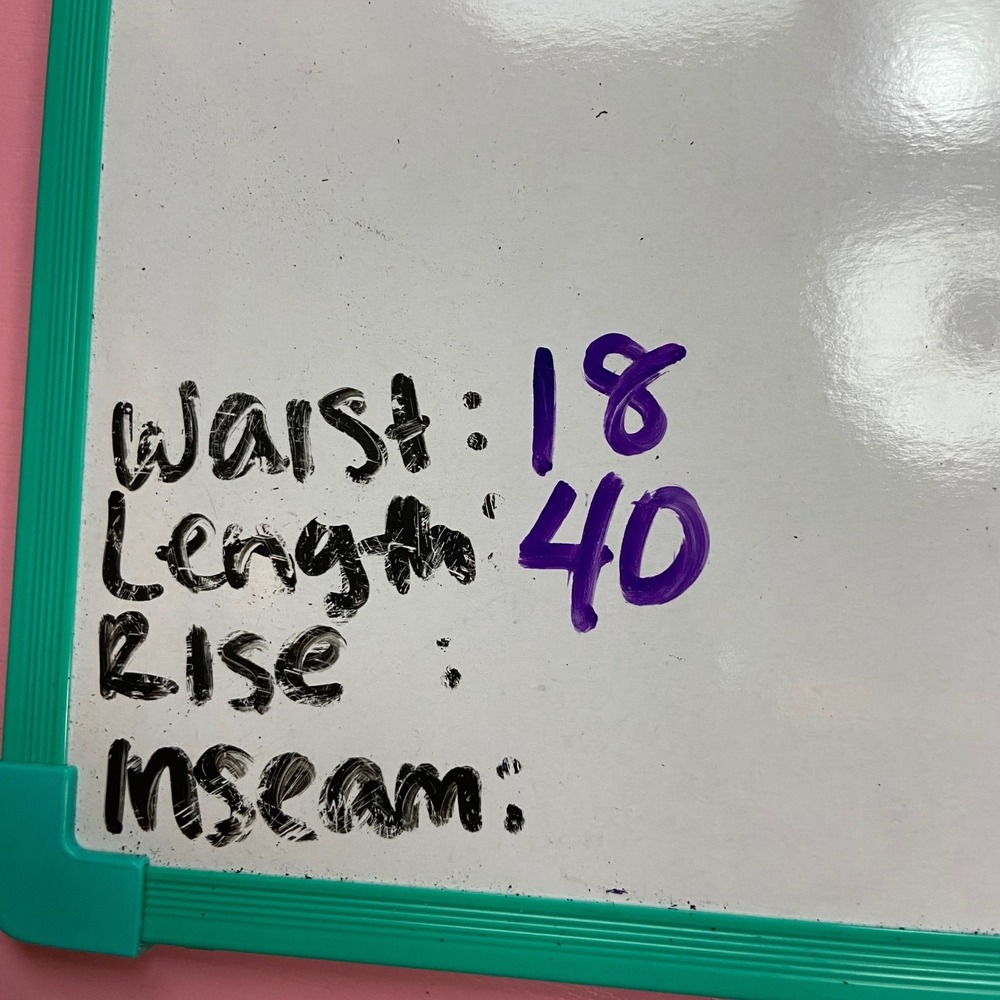 Waist: 18
Length: 40
Rise :
Inseam: